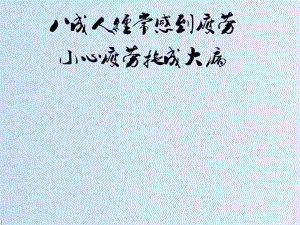 八成人經常感到疲劳
小心疲劳拖成大病